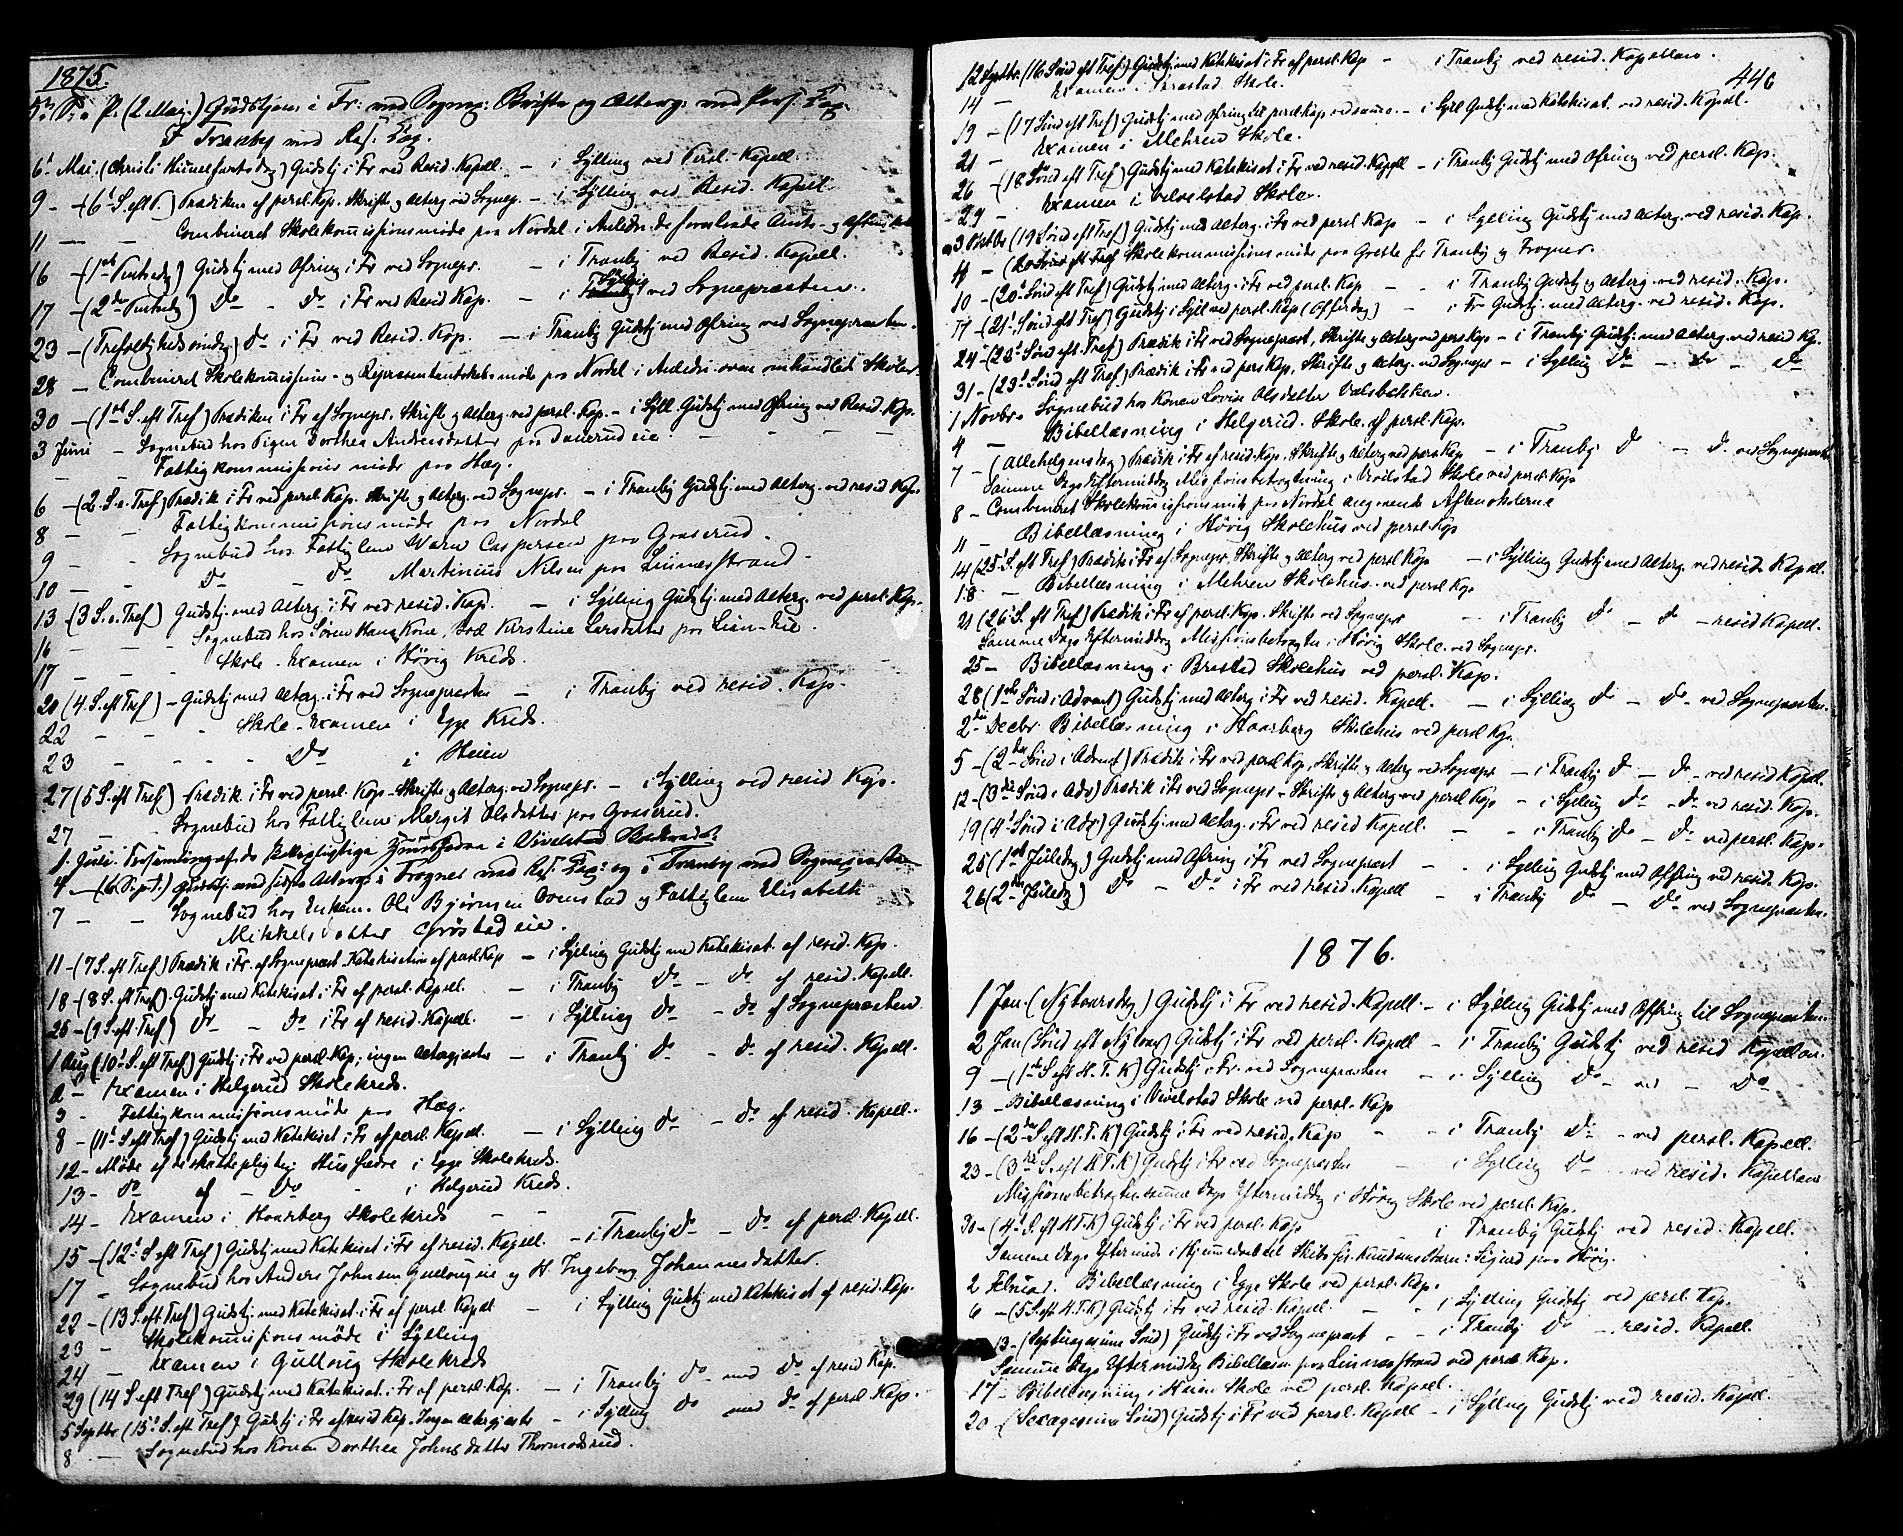 1875.
5te S. e. P. (2 Mai.) Gudstjen: i Fr: med Sognep: Skrifte og Alterg: med Pers: Cap.
I Tranby med Res. Cap.
6te Mai. (Christi Himmelfartsdag) Gudstj i Fr ved Resid. Kapell. - i Sylling ved Persl. Kapell.
9 - (6te S. eft P.) Prædiken af persl. Kap. Skrifte og Alterg. ved Sognep. - i Sylling ved Resid. Kapell.
11 - - Combineret Skolekommissionsmöde paa Nordal i Anledn. de forelænde Amts- og
16 - (1ste Pintsedag) Gudstj med Ofring i Fr ved Sognepr. - i Tranby ved Resid. Kapell.
17 - (2den Pintsedag) Do - Do i Fr ved Resid Kap. - i Sylling ved Sognepræsten.
23 - (Trefoldighedssöndag) Do i Fr ved Resid. Kap. - i Tranby Gudstj med Ofring ved Sognepræsten.
28 - Combineret Skolekommissions- og Repræsentantskabsmöde paa Nordal i Anledn. ovenomhandlede Skoler.
30 - (1ste S. eft Tref) Prædiken i Fr af Sognepr. Skrifte og Alterg. ved persl. Kap. - i Syll. Gudstj med Ofring ved Resid. Kap.
3 Juni - Sognebud hos Pigen Dorthea Andersdatter paa Danerud eie.
- - Fattigkommissionsmöde paa Hæg.
6 - (2 S. e. Tref) Prædik i Fr ved persl Kap. Skrifte og Alterg. ved Sognepr. - i Tranby Gudstj. med Alterg. ved resid Kap.
8 - - Fattigkommissionsmöde paa Nordal
9 - - Sognebud hos Fattiglem Maren Caspersen paa Graserud.
10 - Do - Do Martinius Nilsen paa Linnesstrand
13 - (3 S. e. Tref) Gudstj. med Alterg. i Fr ved resid. Kap. - i Sylling Gudstj. med Alterg. ved persl. Kap.
16 - - Sognebud hos Sören Hans Kone, Berte Kirstine Larsdatter paa Lien-Eie.
17 - - - Skole-Examen i Hörig Kreds.
20 (4. S. eft Tref) - Gudstj med Alterg. i Fr ved Sognepræsten - i Tranby ved resid. Kap.
22 - - - Skole-Examen i Egge Kreds.
23 - - - - Do i Heien
27 (5 S. eft Tref) Prædik i Fr ved persl. Kap - Skrifte og Alterg. ved Sognepr. - i Sylling ved resid Kap.
27 - - Sognebud hos Fattiglem Margit Olsdatter paa Graserud.
1. Juli. Forsamling af de skattepligtige Huusfædre i Vivelstad
4 - (6 S. p. T.) Gudstj. med Alterg: i Frogner med Res. Cap: og i Tranby med Sognepræsten
7 - - Sognebud hos Enkem. Ole Björnsen Ovenstad og Fattiglem Elisabeth
Mikkelsdatter Gröstad eie.
11 - (7 S. eft Tref) Prædik i Fr. af Sognepræst Katekisation af persl Kap - i Sylling Gudstj med Katekisat. af resid. Kap.
18 - (8 S. eft Tref). Gudstj med Katekisat i Fr af persl. Kapell. - i Tranby Do - Do af resid. Kapell.
25 - (9 S. eft. Tref) Do - Do i Fr af resid. Kapell. - i Sylling Do - Do af Sognepræsten
1 Aug (10de S. eft Tref) Gudstj i Fr ved persl. Kap; ingen Altergjæster - i Tranby Do - Do af resid. Kapell.
2 - Examen i Helgerud Skolekreds.
3 - Fattigkommissionsmöde paa Hæg.
8 - (11te S. eft Tref) Gudstj med Katekisat i Fr af persl. Kapell. - i Sylling Do - Do af resid. Kapell.
12 - Möde af de skattepligtige Husfædre i Egge Skolekreds.
13 - Do af - Do - i Helgerud Kreds.
14 - Examen i Haarberg Skolekreds - -
15 - (12te S eft Tref) Gudstj med Katekisat i Fr af resid. Kapell. - i Tranby Do - Do af persl. Kapell.
17 - Sognebud hos Anders Johnsen Gullaug eie og H. Ingeborg Johannesdatter.
22 - (13 S. eft Tref) Gudstj med Katekisat. i Fr af persl. Kapell - i Sylling Gudstj med Katekisat af resid. Kap.
23 - Skolekommissionsmöde i Sylling
24 - Examen i Gullaug Skolekreds
29 (14 S. eft Tref.) Gudstj med Katekisat. i Fr af persl. Kap. - i Tranby Do med Do af resid Kap.
5 Septbr (15de S. eft Tref) Gudstj i Fr af resid Kap. Ingen Altergjæster - i Sylling Do med Do af persl Kap.
8 - Sognebud hos Konen Dorthea Johnsdatter Thormodsrud.
12 Septbr. (16 Sönd eft Tref.) Gudstj med Katekisat i Fr af persl. Kap - i Tranby ved resid. Kapellan.
446
14 - Examen i Skole.
19 - (17 Sönd eft Tref) Gudstj med Ofring til persl. Kap ved samme - i Syll Gudstj med Katekisat. ved resid. Kapell.
21 - Examen i Mehren Skole.
26 - (18 Sönd eft Tref) Gudstj med Katekisat i Fr ved resid. Kapell - i Tranby Gudstj med Ofring ved persl. Kap.
29 - Examen i Vivelstad Skole.
3 Octbr (19 Sönd eft Tref) Gudstj med Alterg. i Fr ved persl. Kap - i Sylling Gudstj med Alterg. ved resid. Kap.
4 - Skolekommissionsmöde paa Grette for Tranby og Frogner.
10 - (20de Sönd eft Tref) Gudstj med Alterg. i Fr ved persl. Kap - i Tranby Gudstj og Alterg. ved resid. Kap.
17 - (21de Sönd eft Tref) Gudstj i Syll ved persl. Kap (Offerdag) - i Fr Gudstj. med Alterg. ved resid. Kap.
24 - (22de Sönd eft. Tref.) Prædik i Fr ved Sognepræst, Skrifte og Alterg ved pers Kap - i Tranby Gudstj. med Alterg. ved resid Kap.
31 - (23de Sönd eft Tref.) Prædik i Fr ved pers Kap, Skrifte og Alterg. ved Sognepr - i Sylling Do - Do - Do
1 Novbr. Sognebud hos Konen Lovise Olsdatter Valsbakken.
4 - Bibellæsning i Helgerud Skole af persl. Kap.
7 - (Allehelgensdag) Prædik i Fr af resid. Kap, Skrifte og Alterg ved pers Kap - i Tranby Do - Do ved Sognepræsten
Samme Dags Eftermiddag Missionsbetragtning i Vivelstad Skole ved persl. Kap
8 - Combineret Skolekommissionsmöde paa Nordal angaaende Aftenskolerne
11 - Bibellæsning i Hörig Skolehus ved persl. Kap
14 (25de S. eft Tref) Prædik i Fr af Sognepr. Skrifte og Alterg ved persl Kap - i Sylling Gudstj med Alterg. ved resid. Kapell.
18 - Bibellæsning i Mehren Skolehus ved persl Kap
21 (26de S. eft Tref) Prædik i Fr af persl. Kap. Skrifte ved Sognepr - i Tranby Do - Do - resid Kapell.
Samme Dags Eftermiddag Missionsbetragtn. i Hörig Skole ved Sognepr.
25 - Bibellæsning i Brastad Skolehus ved persl. Kap.
28 (1ste Sönd i Advent) Gudstj med Alterg i Fr ved resid. Kapell. - i Sylling Do - Do ved Sognepræsten.
2den Decbr. Bibellæsning i Haarberg Skolehus ved persl Kap.
5 - (2den Sönd i Advent) Prædik i Fr ved persl Kap, Skrifte og Alterg ved Sognepr - i Tranby Do - Do ved resid Kapell.
12 - (3die Sönd i Adv) Prædik i Fr ved Sognepr - Skrifte og Alterg ved persl Kap - i Sylling Do - Do ved resid. Kap.
19 (4de Sönd i Adv) Gudstj. med Alterg. i Fr ved resid Kapell. - - i Tranby Do - Do ved persl. Kap.
25 (1ste Juledag) Gudstj med Ofring i Fr ved Sognepræst - i Sylling Gudstj med Offring ved resid. Kap.
26 (2den Juledag) Do - Do i Fr ved resid. Kapell - i Tranby Do - Do ved Sognepræsten.
1876.
1 Jan. (Nytaarsdag) Gudstj i Fr ved resid. Kapell - i Sylling Gudstj med Offring til Sognepræsten
2 Jan (Sönd eft Nytaar) Gudstj i Fr ved persl. Kapell - i Tranby Gudstj ved resid Kapellan.
9 - (1ste S. eft H. T. K) Gudstj i Fr. ved Sognepræsten - i Sylling Do - ved - Do
13 - Bibellæsning i Vivelstad Skole ved persl. Kap
16 - (2den S. eft H. T. K) Gudstj i Fr ved resid. Kap - - i Tranby Do - ved persl. Kapell.
23 - (3die S. eft H T. K) Gudstj i Fr ved Sognepræsten - i Sylling Do - ved resid. Kapellan
Missionsbetragtn. samme Dags Eftermiddag i Hörig Skole ved persl. Kap.
30 - (4de S. eft H T. K) Gudstj. i Fr ved persl. Kap - i Tranby Gudstj ved resid. Kapell.
Samme Dags Eftermidd. Hjemmedaab til Skibsför. Knudsens Barn: Sigurd paa Hörig.
2 Februar. Bibellæsning i Egge Skole ved persl. Kap.
6 - (5 S. eft H. T. K) Gudstj i Fr ved resid. Kapell. - - i Sylling Gudstj ved persl. Kap.
13 - (Septuagesima Sönd) Gudstj i Fr ved Sognepræst - - i Tranby Do - resid. Kapell.
Samme Dags Eftermiddag Bibellæsn. paa Linnesstrand ved persl. Kap.
17 - Bibellæsning i Heien Skole ved persl. Kapell.
20 - (Sexagesima Sönd) Gudstj i Fr ved persl. Kapell - i Sylling Gudstj ved resid. Kapell.